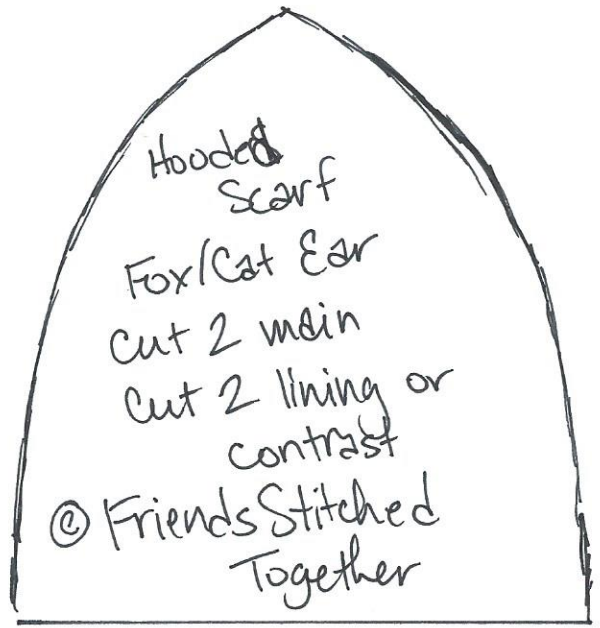 Hooded
Scarf
Fox/Cat Ear
Cut 2 main
Cut 2 lining or
contrast
© Friends Stitched
Together